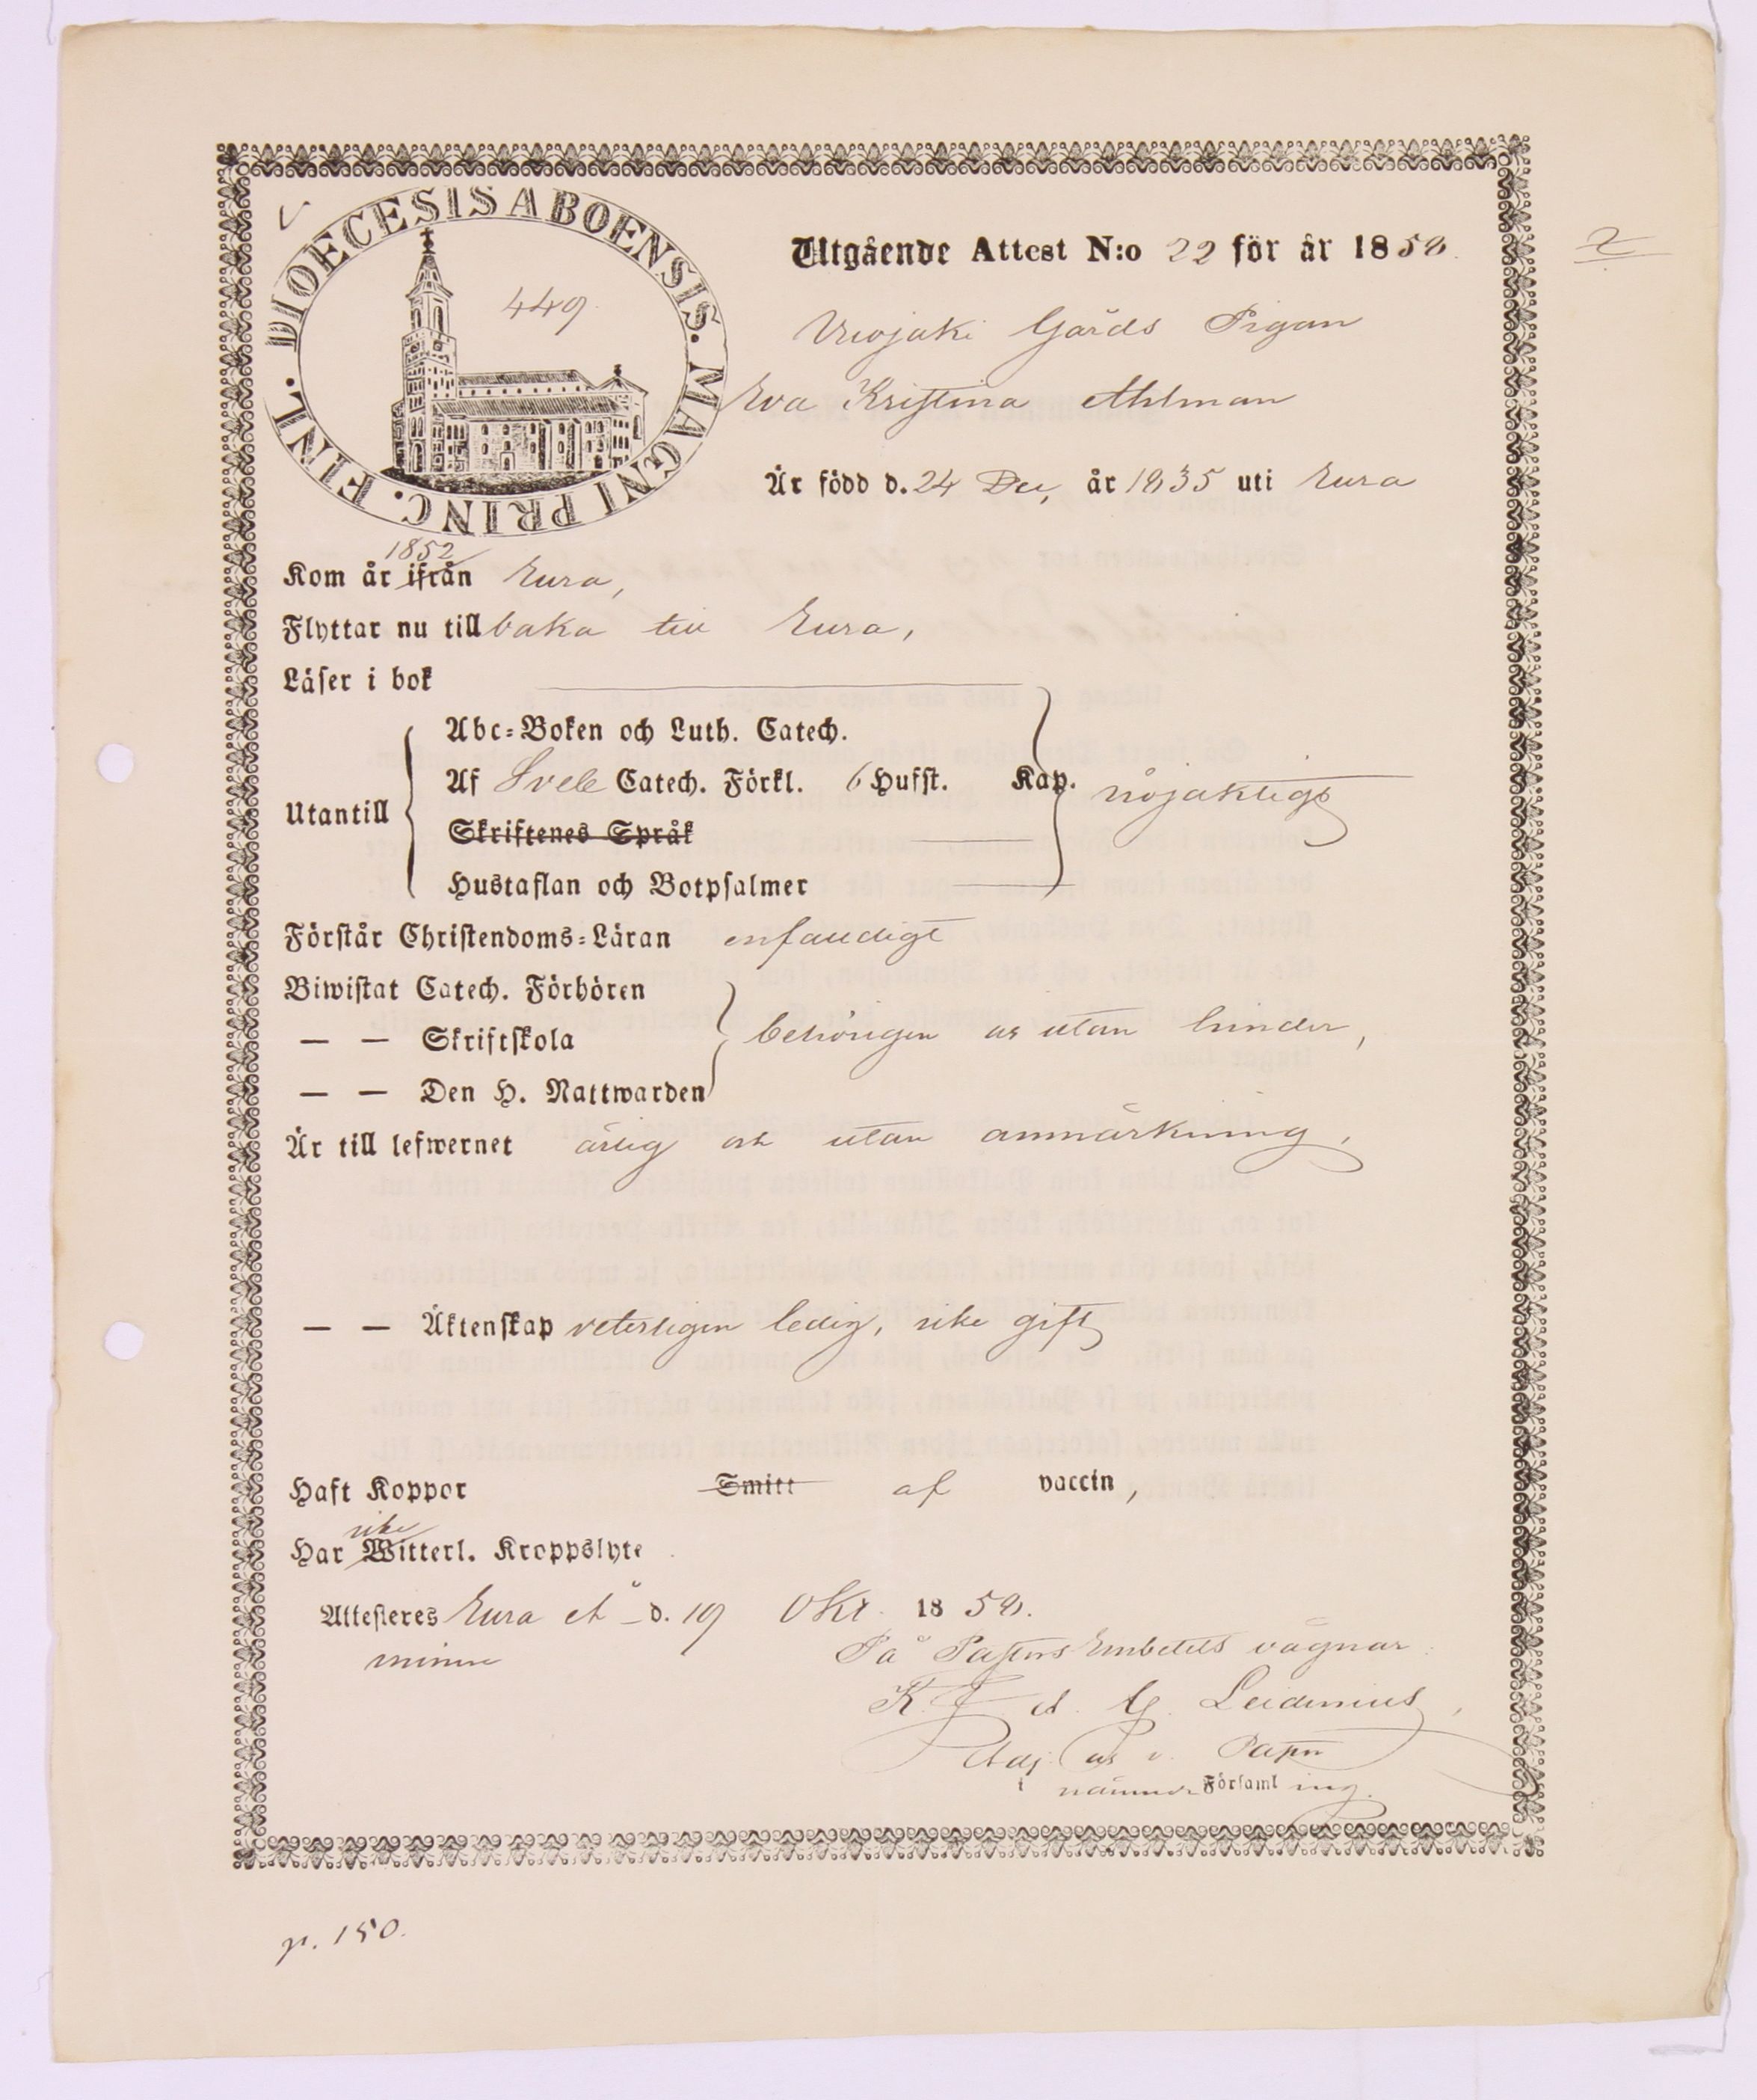 DIOECESIS ABOENSIS. MAGNI PRINC. FINL.
449.
Utgående Attest N:o 22 för år 1858.
2
Gårds Pigan
Eva Kristina Ahlman
Är född d. 24 Dec, år 1835 uti Eura
1852
Kom år ifrån Eura,
Flyttar nu till baka till Eura,
Läser i bok
Abc-Boken och Luth. Catech.
Utantill Af Svebe Catech. Förkl. 6 Hufst. Kap. nöjaktigt
Skriftenes Språk
Hustaflan och Botpsalmer
Förstår Christendoms-Läran enfaldigt
Biwistat Catech. Förhören
— — Skriftskola behörigen och utan hinder,
— — Den H. Nattwarden
Är till lefwernet ärlig och utan anmärkning,
— — Äktenskap veterligen ledig, icke gift
Haft Koppor Smitt af vaccin,
icke
Har Witterl. Kroppslyte
Attesteres Eura å d. 19 Okt. 1858.
På Pastors Embetets vägnar
K. F. A. G. Leidenius,
Adj. och v. Pastor
i nämnde Församling.
p. 150.